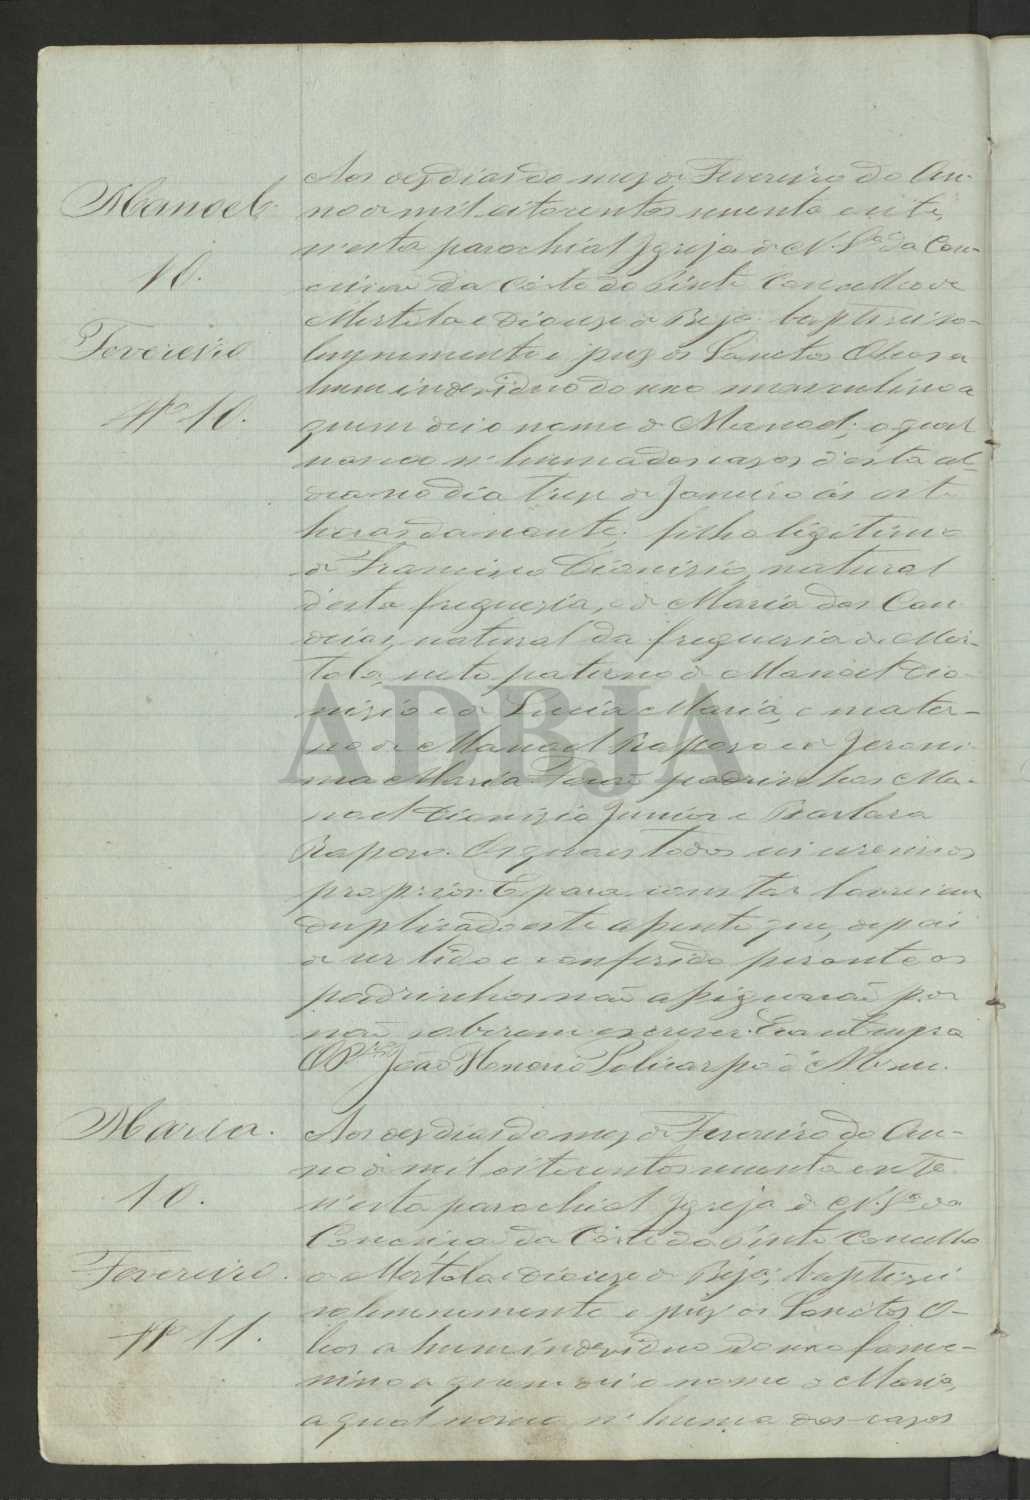 Manoel.
10.
Fevereiro
Nº 10.
Aos dez dias do mez de Fevereiro do An-
no de mil oitocentos noventa e sete,
n'esta parochial Igreja de N. Srª da Con-
ceição da Côrte do Pinto Concelho de
Mertola e Diocese de Beja baptisei so-
lemnemente e puz os Sanctos Oleos a
hum individuo do sexo masculino a
quem dei o nome de Manoel; o qual
nasceo n'huma das casas d'esta al-
dea no dia trez de Janeiro ás sete
horas da noute: filho legitimo
de Francisco Dionisio, natural
d'esta freguezia, e de Maria das Can-
deias, natural da freguesia de Mer-
tola, neto paterno de Manoel Dio-
nizio e de Lucia Maria, e mater-
no de Manoel Raposo e de Jeroni-
ma Maria. Forão padrinhos Ma-
noel Dionizio Junior e Barbara
Raposo. Os quaes todos sei serem os
proprios. E para constar lavrei em
duplicado este assento que, depois
de ser lido e conferido perante os
padrinhos não assignarão por
não saberem escrever. Era ut supra
O Pr. João Honorio Policarpo
Maria.
10.
Fevereiro.
Nº 11.
Aos dez dias do mez de Fevereiro do An-
no de mil oitocentos noventa e sete
n'esta parochial Igreja de N. Srª da
Conceição da Côrte do Pinto Concelho
de Mértola e diocese de Beja; baptisei
solemnemente e puz os Sanctos O-
leos a hum individuo do sexo feme-
nino a quem dei o nome de Maria,
a qual nasceu n'huma das casas
ADBJA